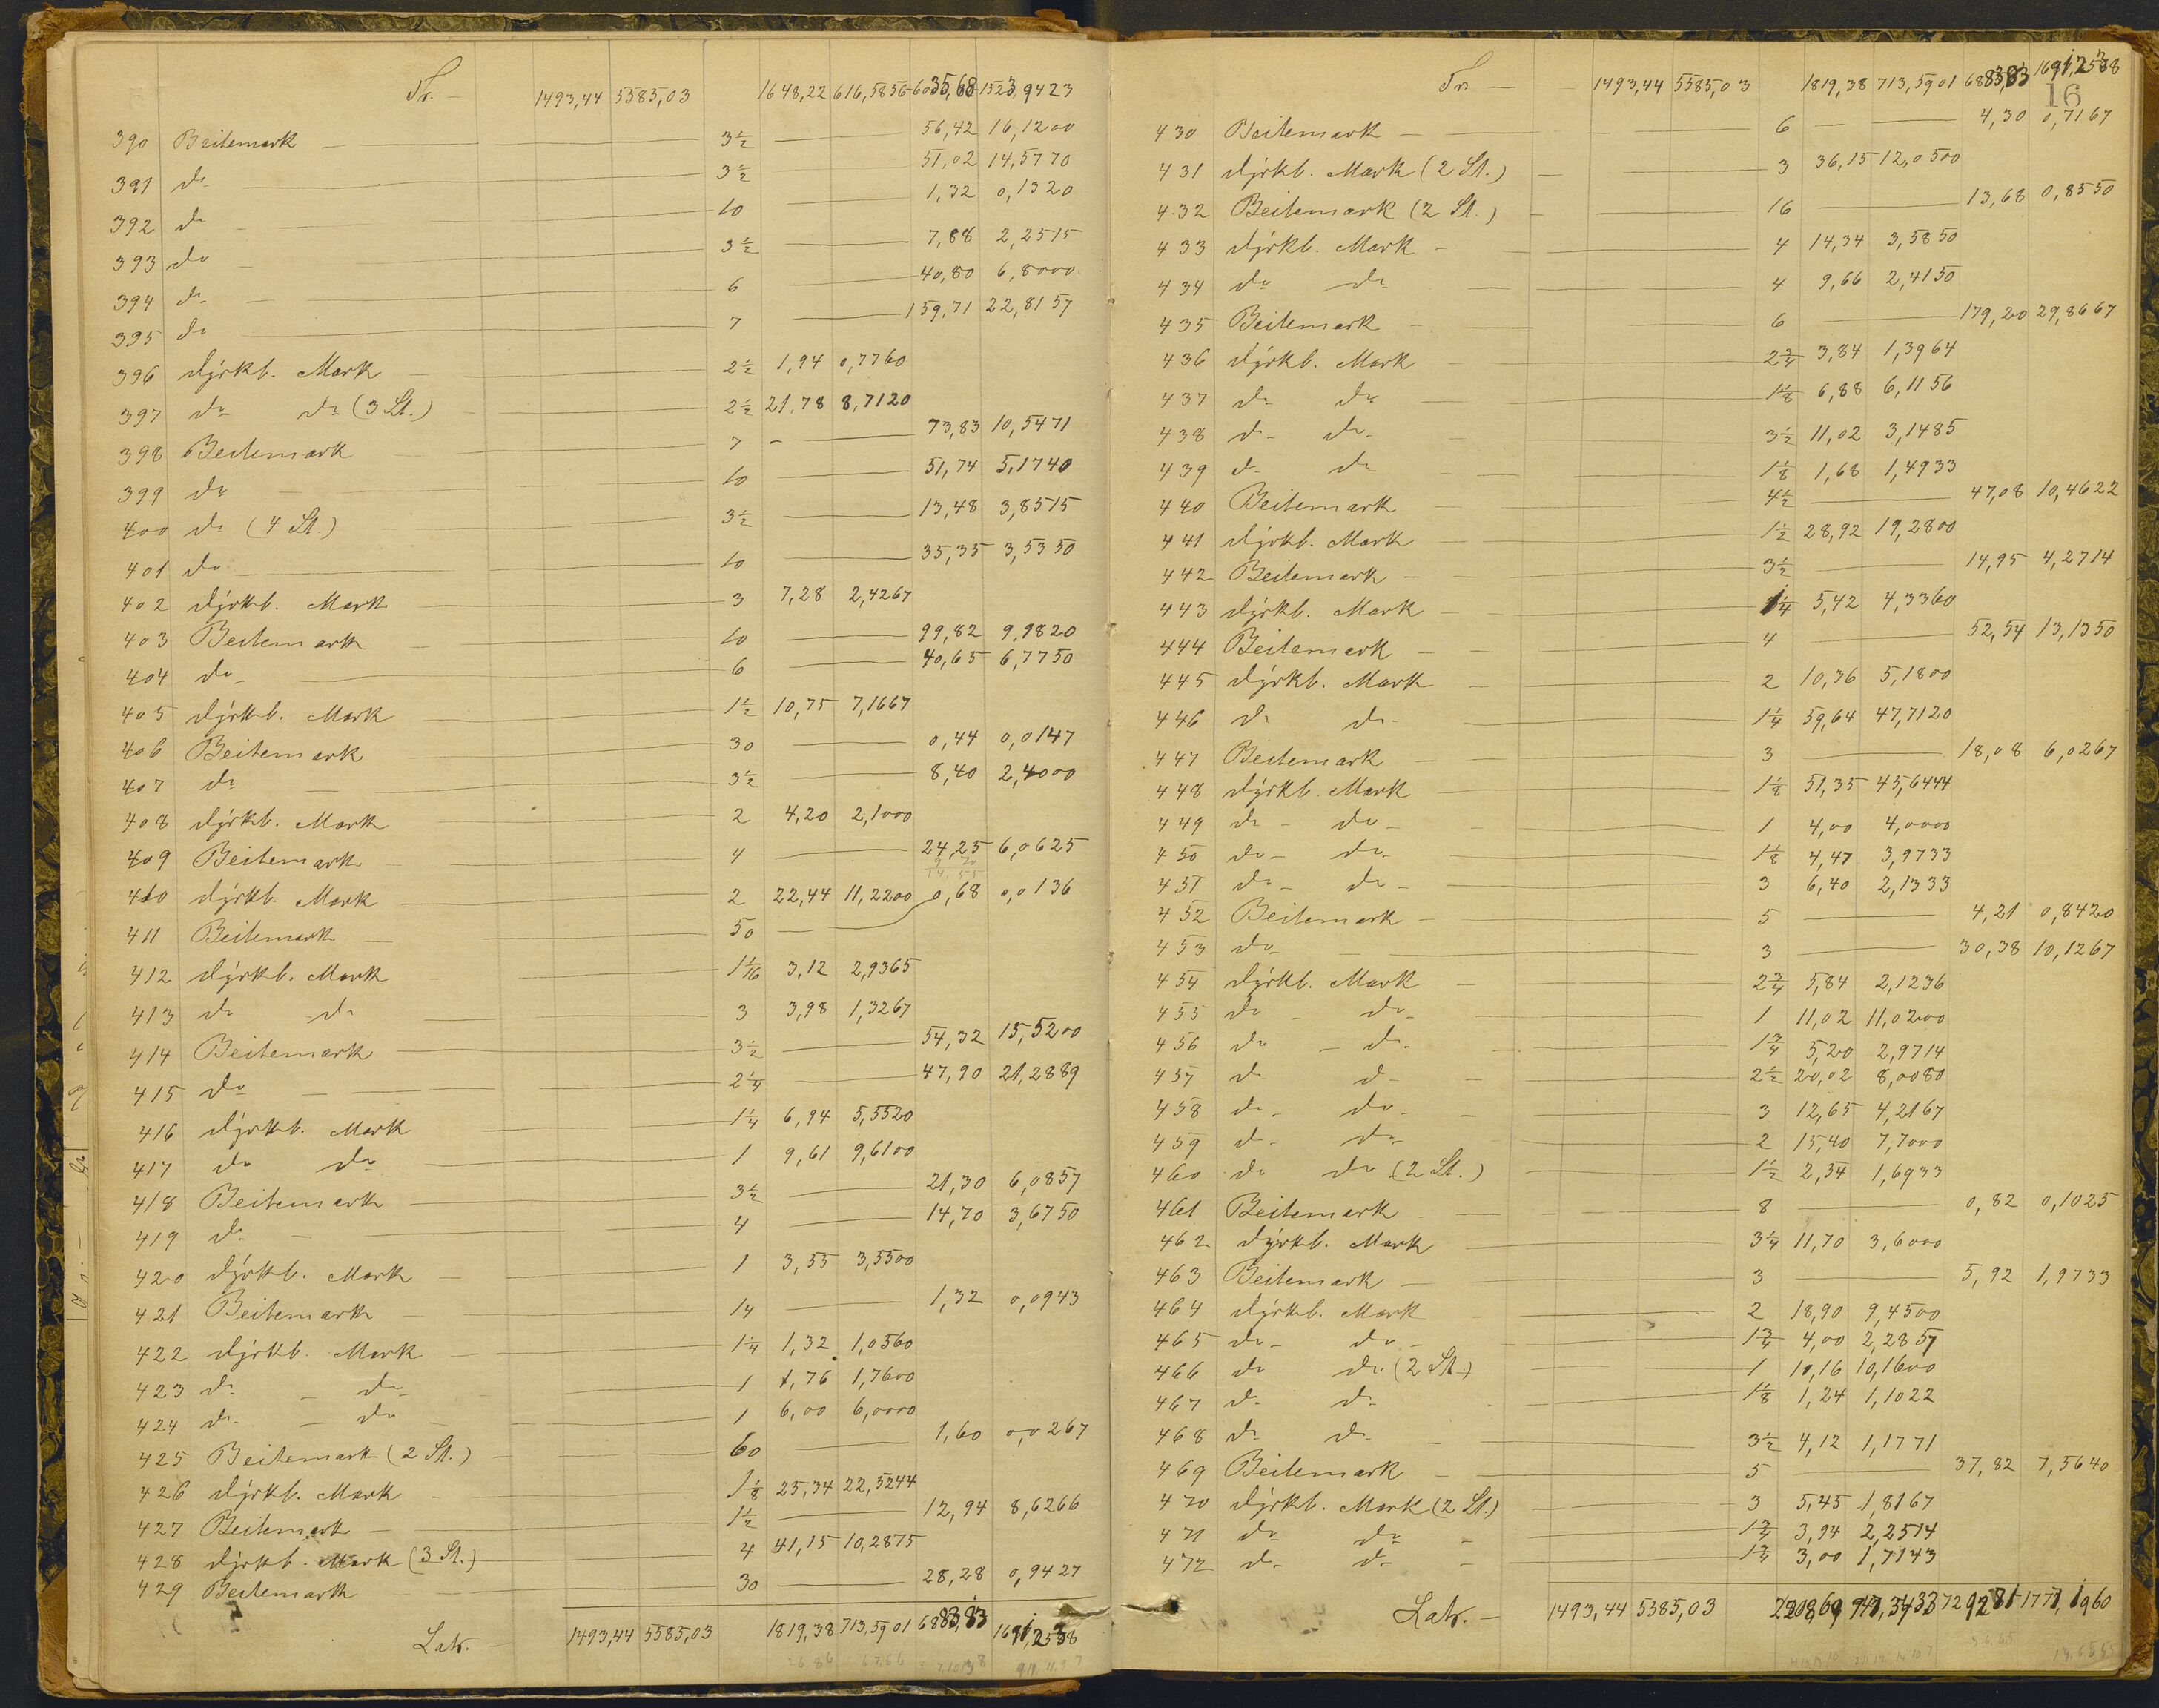 Tr. 1493,44 5585,03 1648,22 616,5856 6035,68 1523,9423
390 Beitemark 3½ 56,42 16,1200
391 do 3½ 51,02 14,5770
392 do 10 1,32 0,1320
393 do 3½ 7,88 2,2515
394 do 6 40,80 6,8000
395 do 7 159,71 22,8157
396 dyrkb. Mark 2½ 1,94 0,7760
397 do do (3 St.) 2½ 21,78 8,7120
398 Beitemark 7 73,83 10,5471
399 do 10 51,74 5,1740
400 do (4 St.) 3½ 13,48 3,8515
401 do 10 35,35 3,5350
402 dyrkb. Mark 3 7,28 2,4267
403 Beitemark 10 99,82 9,9820
404 do 6 40,65 6,7750
405 dyrkb. Mark 1½ 10,75 7,1667
406 Beitemark 30 0,44 0,0147
407 do 3½ 8,40 2,4000
408 dyrkb. Mark 2 4,20 2,1000
409 Beitemark 4 24,25 6,0625
410 dyrkb. Mark 2 22,44 11,2200 0,68 0,0136
411 Beitemark 50
412 dyrkb. Mark 1 1/16 3,12 2,9365
413 do do 3 3,98 1,3267
414 Beitemark 3½ 54,32 15,5200
415 do 2¼ 47,90 21,2889
416 dyrkb. Mark 1¼ 6,94 5,5520
417 do do 1 9,61 9,6100
418 Beitemark 3½ 21,30 6,0857
419 do 4 14,70 3,6750
420 dyrkb. Mark 1 3,55 3,5500
421 Beitemark 14 1,32 0,0943
422 dyrkb. Mark 1¼ 1,32 1,0560
423 do do 1 1,76 1,7600
424 do do 1 6,00 6,0000
425 Beitemark (2 St.) 60 1,60 0,0267
426 dyrkb. Mark 1⅛ 25,34 22,5244
427 Beitemark 1½ 12,94 8,6266
428 dyrkb. Mark (3 St.) 4 41,15 10,2875
429 Beitemark 30 28,28 0,9427
Latr. 1493,44 5585,03 1819,38 713,5901 6883,83
16
Tr. 1493,44 5585,03 1819,38 713,5901 6883,83
430 Beitemark 6 4,30 0,7167
431 dyrkb. Mark (2 St.) 3 36,15 12,0500
432 Beitemark (2 St.) 16 13,68 0,8550
433 dyrkb. Mark 4 14,34 3,5850
434 do do 4 9,66 2,4150
435 Beitemark 6 179,20 29,8667
436 dyrkb. Mark 2¾ 3,84 1,3964
437 do do 1⅛ 6,88 6,1156
438 do do 3½ 11,02 3,1485
439 do do 1⅛ 1,68 1,4933
440 Beitemark 4½ 47,08 10,4622
441 dyrkb. Mark 1½ 28,92 19,2800
442 Beitemark 3½ 14,95 4,2714
443 dyrkb. Mark 1¼ 5,42 4,3360
444 Beitemark 4 52,54 13,1350
445 dyrkb. Mark 2 10,36 5,1800
446 do do 1¼ 59,64 47,7120
447 Beitemark 3 18,08 6,0267
448 dyrkb. Mark 1⅛ 51,35 45,6444
449 do do 1 4,00 4,0000
450 do do 1⅛ 4,47 3,9733
451 do do 3 6,40 2,1333
452 Beitemark 5 4,21 0,8420
453 do 3 30,38 10,1267
454 dyrkb. Mark 2¾ 5,84 2,1236
455 do do 1 11,02 11,0200
456 do do 1¾ 5,20 2,9714
457 do do 2½ 20,02 8,0080
458 do do 3 12,65 4,2167
459 do do 2 15,40 7,7000
460 do do (2 St.) 1½ 2,54 1,6933
461 Beitemark 8 0,82 0,1025
462 dyrkb. Mark 3¼ 11,70 3,6000
463 Beitemark 3 5,92 1,9733
464 dyrkb. Mark 2 18,90 9,4500
465 do do 1¾ 4,00 2,2857
466 do do (2 St.) 1 10,16 10,1600
467 do do 1⅛ 1,24 1,1022
468 do do 3½ 4,12 1,1771
469 Beitemark 5 37,82 7,5640
470 dyrkb. Mark (2 St.) 3 5,45 1,8167
471 do do 1¾ 3,94 2,2514
472 do do 1¾ 3,00 1,7143
Latr. 1493,44 5585,03